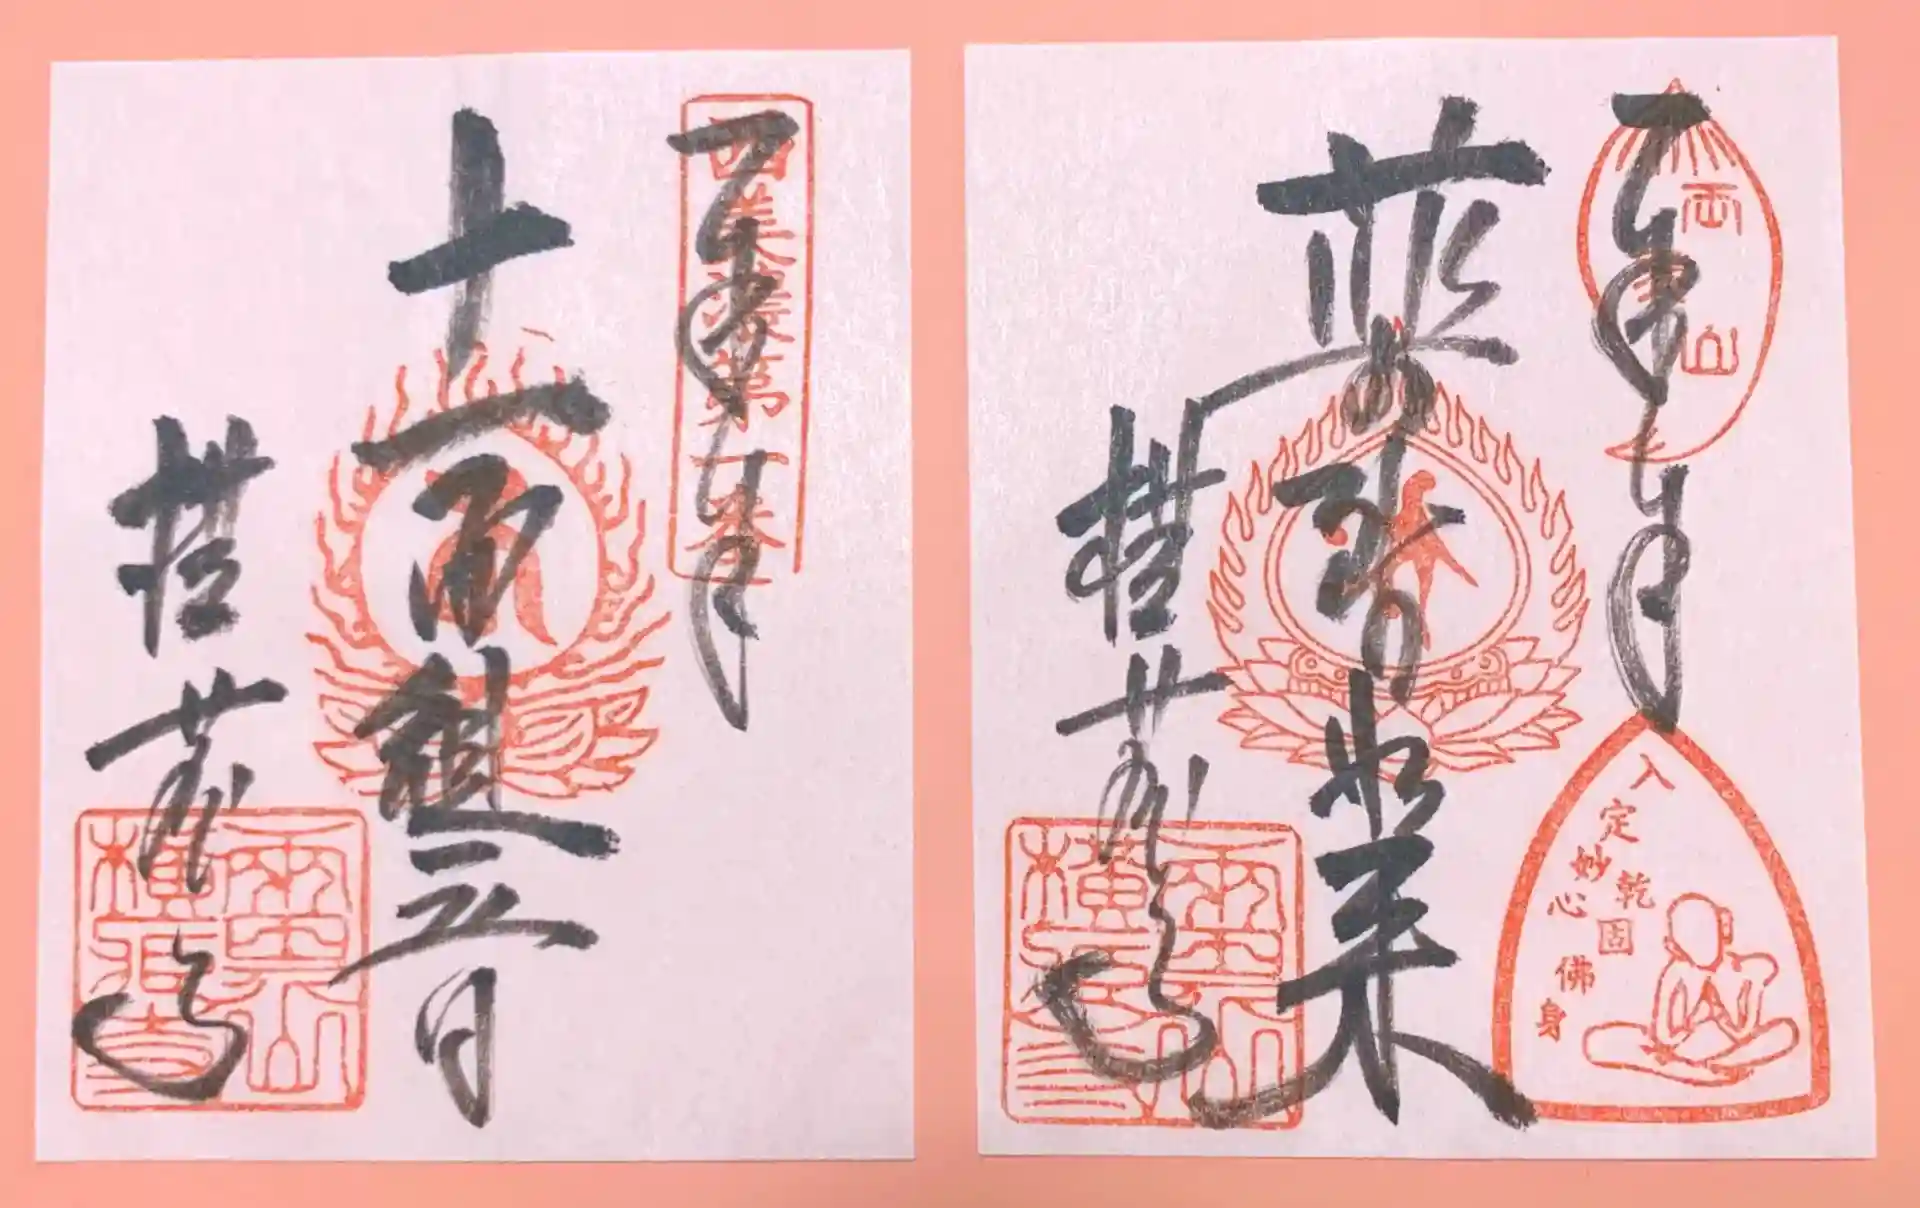 奉拝
西美濃第一番
十一面観世音
横蔵寺
兩界山
横蔵寺
奉拝
両界山
薬師如来
横蔵寺
兩界山
横蔵寺
入定妙心
乾固佛身